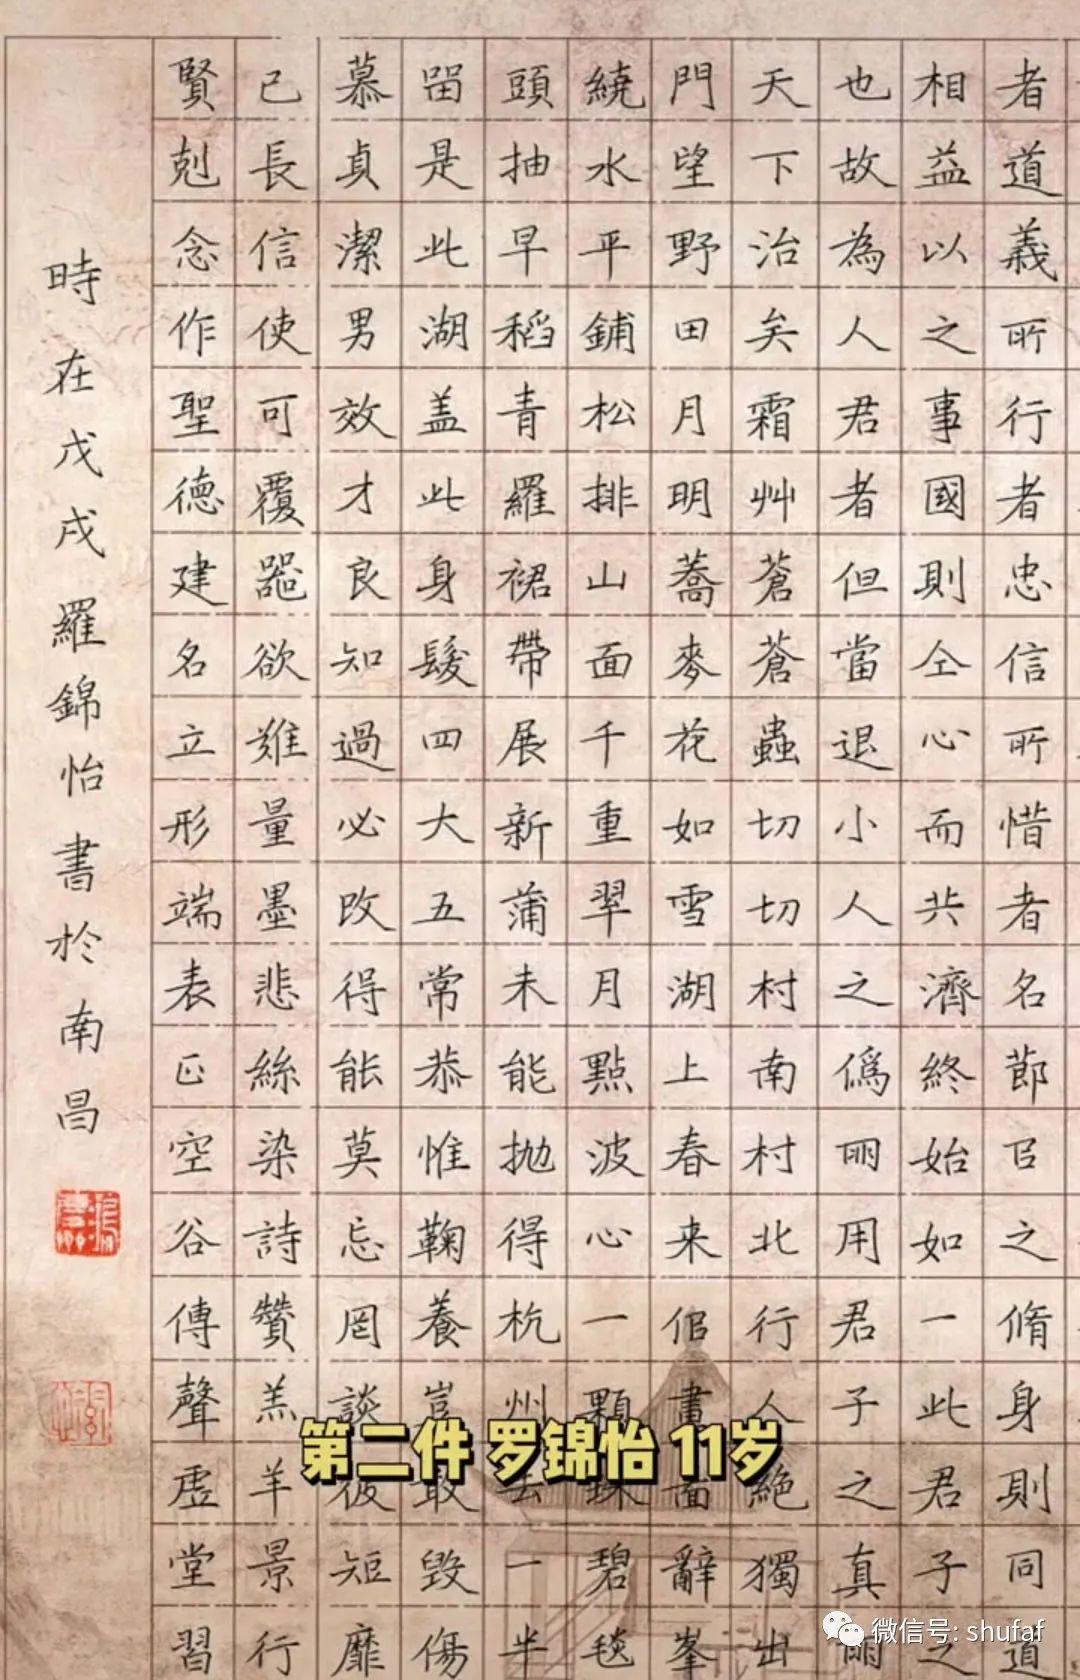 者道義所行者忠信所惜者名節以之脩身則同道
相益以之事國則仝心而共濟終始如一此君子之
也故為人君者但當退小人之偽朋用君子之真朋
天下治矣霜艸蒼蒼蟲切切村南村北行人絕獨出
門望野田月明蕎麥花如雪湖上春来佀畫面辭峯
繞水平鋪松排山面千重翠月點波心一顆珠碧毯
頭抽早稻青羅裙帶展新蒲未能拋得杭州去一半
畱是此湖盖此身髮四大五常恭惟鞠養豈敢毀傷
慕貞潔男效才良知過必改得能莫忘罔談彼短靡
己長信使可覆器欲難量墨悲絲染詩贊羔羊景行
賢剋念作聖德建名立形端表正空谷傳聲虛堂習
時在戊戌羅錦怡書於南昌
第二件 罗錦怡 11岁
微信号: shufaf